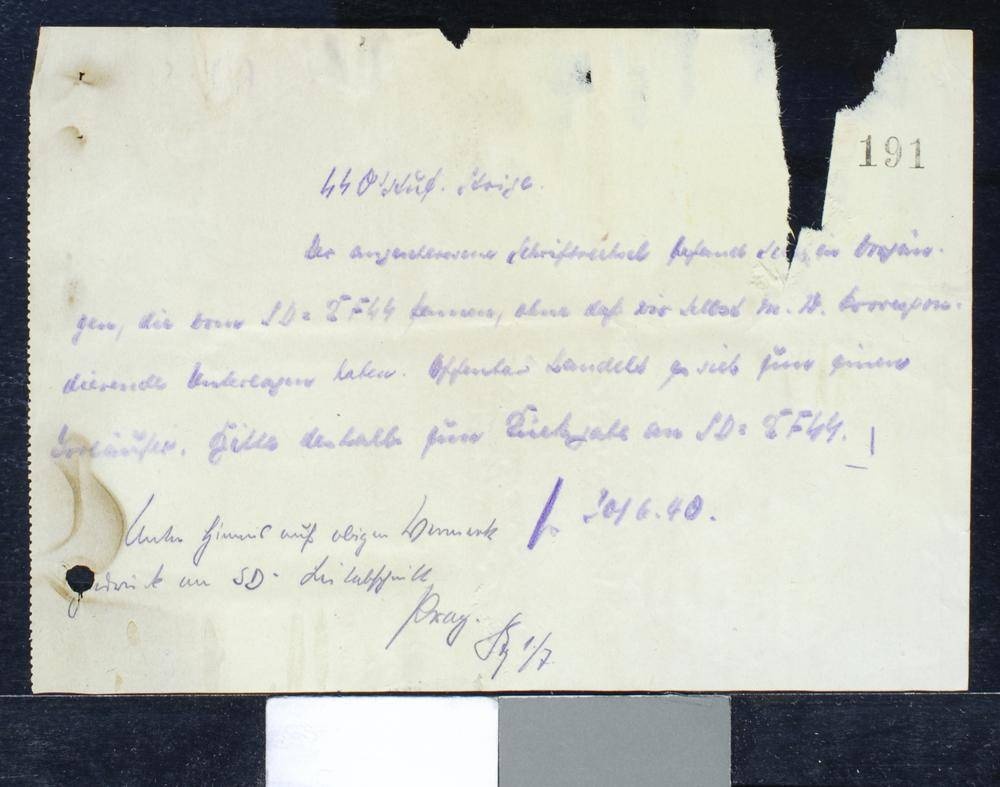 191
SS O'Stuf.
Der angenommene Schriftwechsel befand sich in Vorgän-
gen, die vom SD= kommen, ohne daß wir selbst m. W. korrespon-
dierende Unterlagen haben. Offenbar handelt es sich um einen
Vorläufer. Bitte deshalb um Rückgabe an SD=
20/6.40.
Unter Hinweis auf obigen Vermerk
zurück an SD- Leitabschnitt
Prag.
1/7